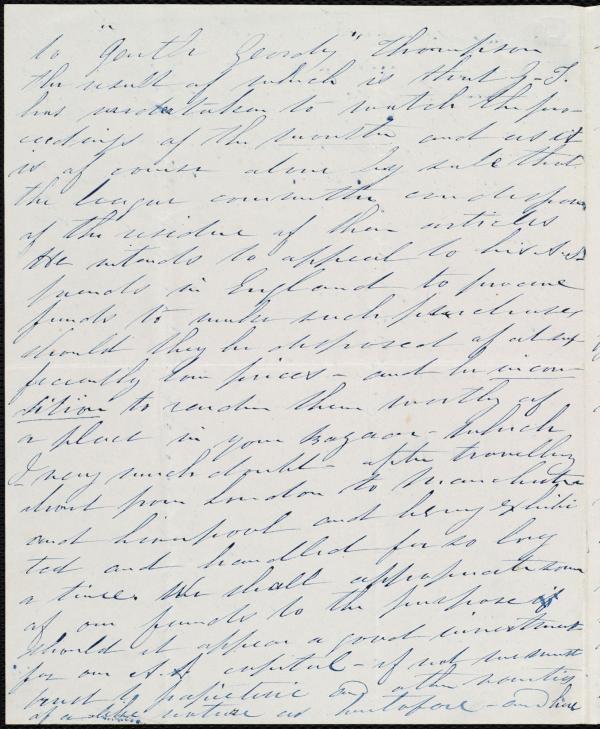 to "Gentle Geordy" Thompson
the result of which is that G. T.
has undertaken to watch the pro-
ceedings of the monster and as it
is of course alone by sale that
the league committee can dispose
of the residue of their articles
He intends to appeal to his A. S.
friends in England to procure
funds to make such purchases
should they be disposed of at suf
ficiently low prices - and be in con-
dition to render them worthy of
a place in your Bazaar - which
I very much doubt - after travelling
about from London to Manchester
and Liverpool and being exhibi
ted and handled for so long
a time. We shall appropriate some
of our funds to the purpose if
should it appear a good investment
for our A. S. capital - if not we must
trust to papeterie and other novelties
of a like nature as heretofore - and have